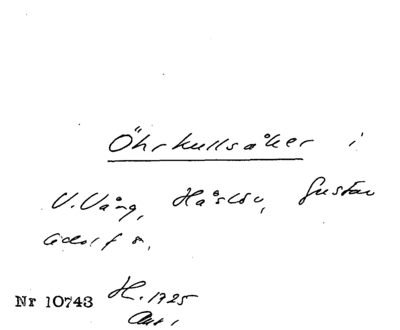 Öhrkullsåker i
V. Vång, Håslöv, Gustav
Adolf s.
Nr 10743 H. 1725
Akt 1